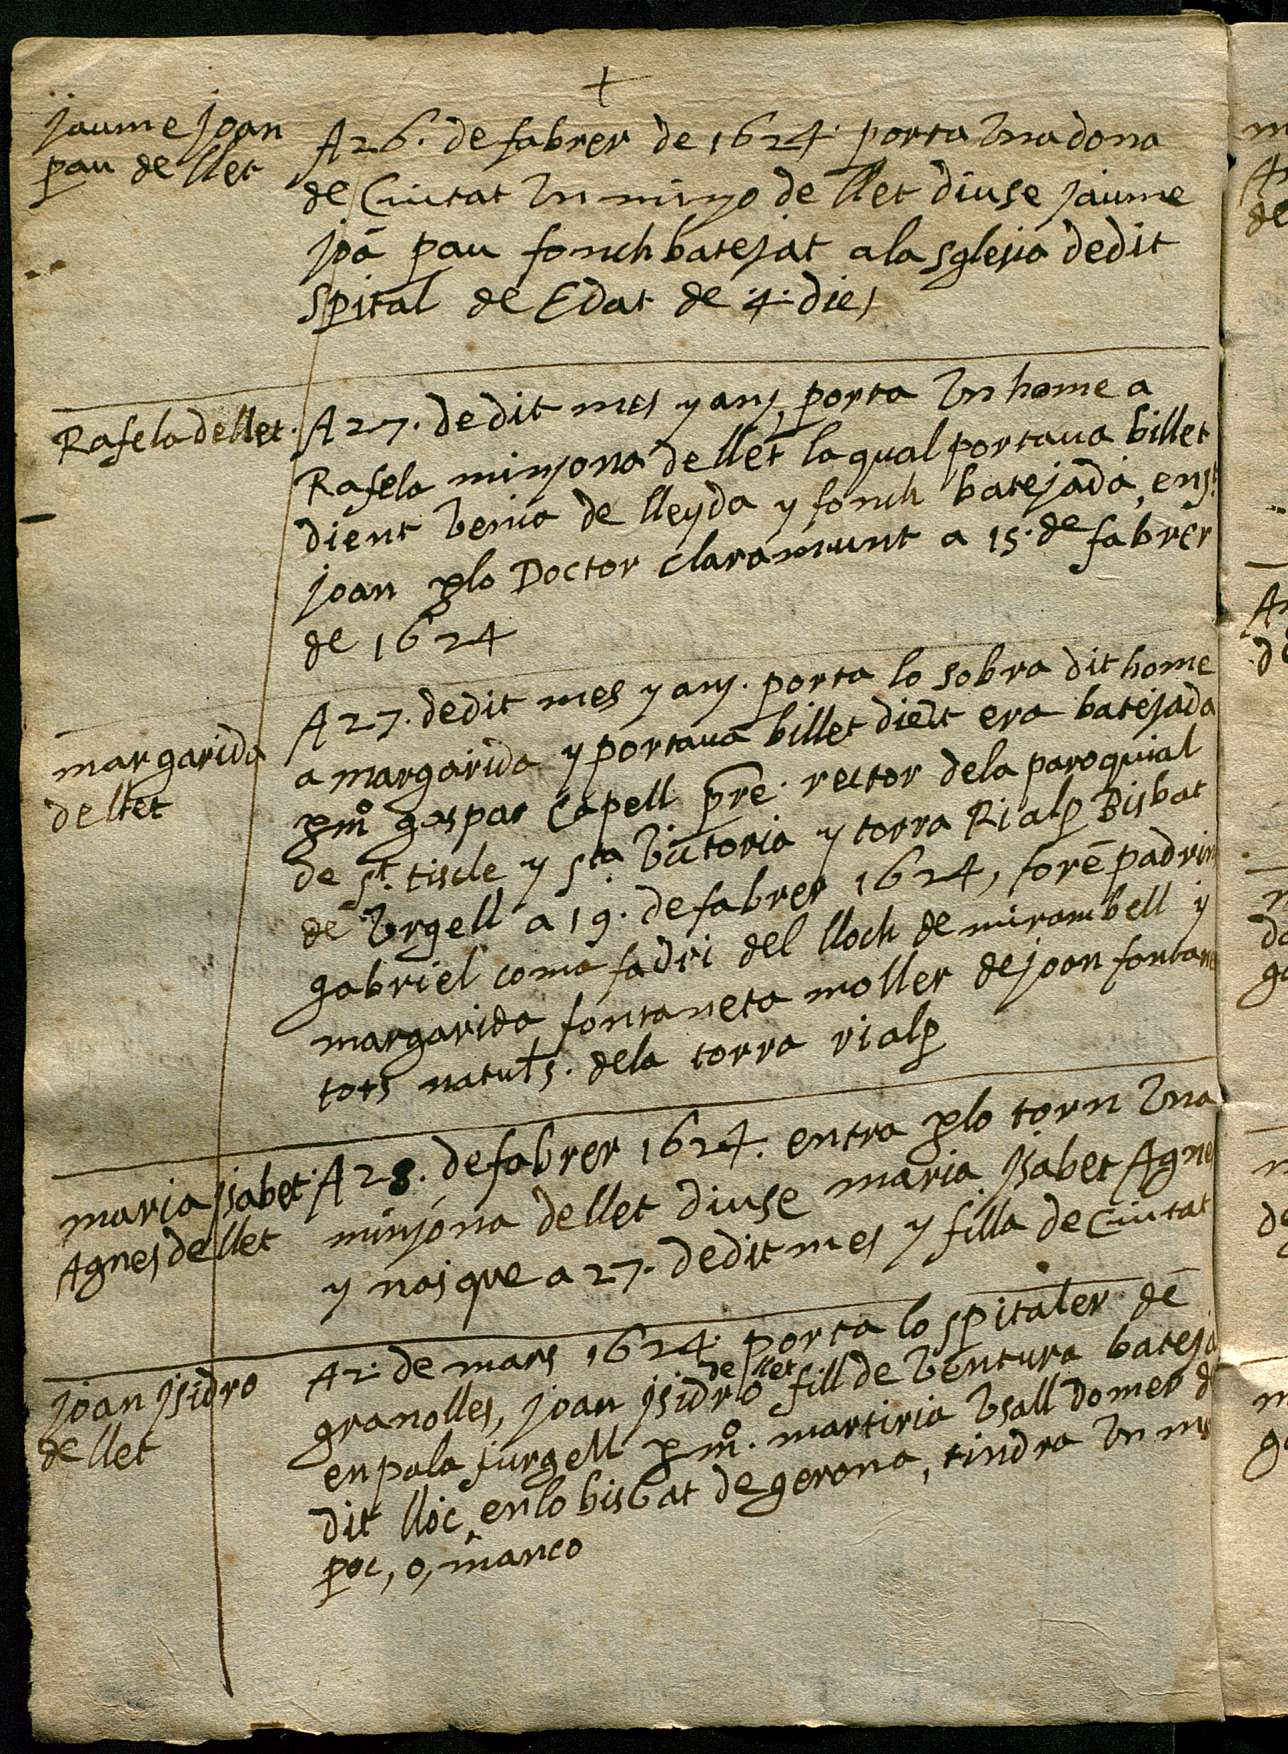 +
jaume joan
pau de llet
A 26. de fabrer de 1624 porta una dona
de Ciutat un minyo de llet diuse jaume
joã pau fonch batejat a la sglesia de dit
spital de Edat de 4 dies
Rafela de llet.
A 27. de dit mes y any porta un home a
Rafela minyona de llet la qual portaua billet
dient venia de lleyda y fonch batejada, en st
joan plo Doctor claramunt a 15. de fabrer
de 1624
margarida
de llet
A 27. de dit mes y any. porta lo sobra dit home
a margarida y portaua billet dient era batejada
p mº gaspar Capell pre. rector de la paroquial
de st. tiscle y sta victoria y torra Rialp Bisbat
de Urgell a 19. de fabrer 1624, forē padrin
gabriel coma fadri del lloch de mirambell y
margarida fontaneta moller de joan fontane
tots natuls. de la torra rialp
maria ysabet
Agnes de llet
A 28. de fabrer 1624. entra plo torn una
minyona de llet diuse maria ysabet Agne
y nasque a 27. de dit mes y filla de Ciutat
joan ysidro
de llet
A 2. de mars 1624 porta lo spitaler de
granolles, joan ysidro de llet fill de ventura bateja
en pala furgell p mº. martiria Vsall domer d
dit lloc, en lo bisbat de gerona, tindra un me
poc, o, manco